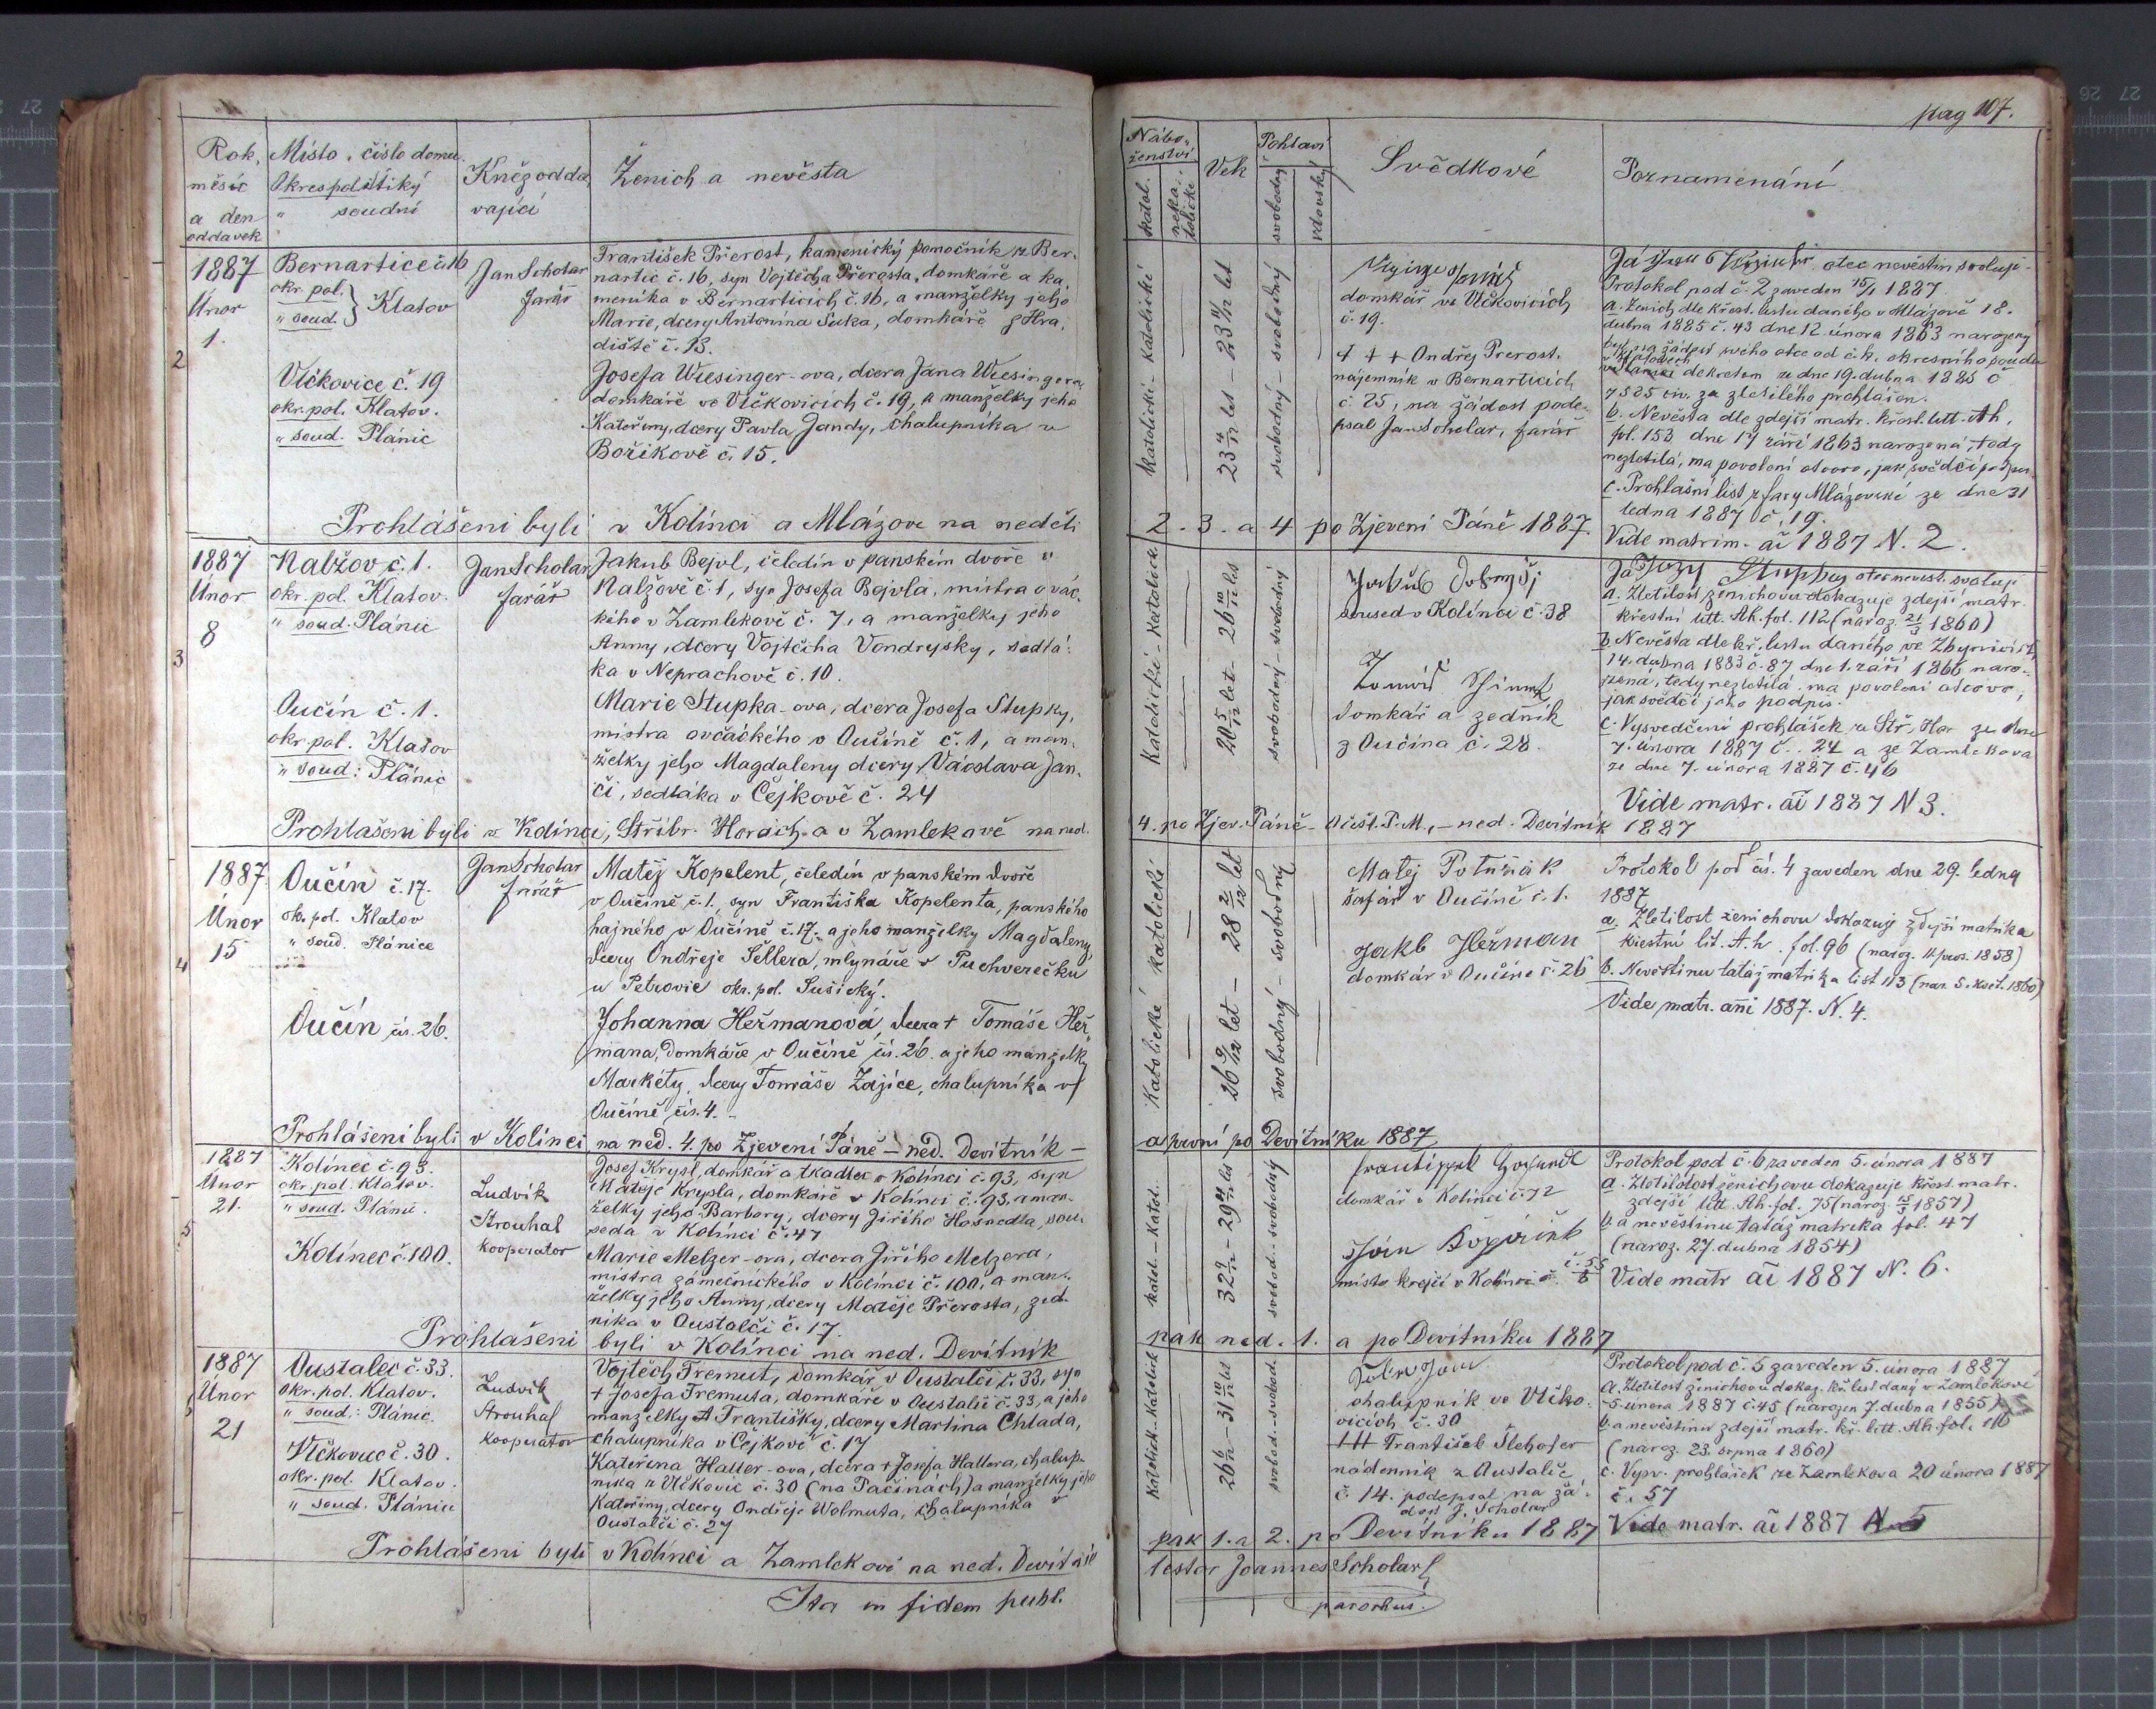 pag 107.
Rok, měsíc a den oddavek
Místo, číslo domu. Okres politiký " soudní
Kněz oddavající
Ženich a nevěsta
Nábo„ženství
katol.
neka„tolické
Vek
Pohlaví
svobodný
vdovský
Svědkové
Poznamenání
2
1887
Únor
1.
Bernartice č. 16
okr. pol.
" soud. } Klatov
Vlčkovice č. 19
okr. pol. Klatov.
" soud. Plánic
Jan Scholar
farář
František Přerost, kamenický pomočník z Ber„
nartic č. 16, syn Vojtěcha Přerosta, domkáře a ka„
meníka v Bernarticích č. 16, a manželky jeho
Marie, dcery Antonína Suka, domkáře z Hra„
diště č. 13.
Josefa Wiesinger-ova, dcera Jana Wiesingera,
domkáře ve Vlčkovicích č. 19, a manželky jeho
Kateřiny, dcery Pavla Jandy, chalupníka v
Bořikově č. 15.
Katolické - Katolické
23 4/12 let - 23 11/12 let
svobodný - svobodný
domkář ve Vlčkovicích
č. 19.
+ + + Ondřej Prerost.
nájemník v Bernarticích
č. 25, na žádost pode„
psal Jan Scholar, farář
otec nevěstin svoluji
Protokol pod č. 2 zaveden 15/1 1887
a. Ženich dle křest. listu daného v Mlázově 18.
dubna 1885 č. 43 dne 12. února 1863 narozený
byl na žádost svého otce od c. k. okresního soudu
v Klatovech dekretem ze dne 19. dubna 1885 č
7525 civ. za zletilého prohlášen.
b. Nevěsta dle zdejší matr. křest. litt. Ah,
fol. 153 dne 17 září 1863 narozená, tedy
nezletilá, ma povolení otcovo, jak svědčí podpis.
c. Prohlašní list z fary Mlázovské ze dne 31
ledna 1887 č. 19.
Vide matrim. ai 1887 N. 2.
Prohlášeni byli v Kolínci a Mlázove na neděli 2. 3. a 4 po Zjevení Páně 1887.
3
1887
Únor
8
Nalžov č. 1.
okr. pol. Klatov.
" soud. Plánic
Oučín č. 1.
okr. pol. Klatov
" soud: Plánic
Jan Scholar
farář
Jakub Bejvl, čeledín v panském dvoře v
Nalžově č. 1, syn Josefa Bejvla, mistra ovčác„
kého v Zamlekově č. 7, a manželky jeho
Anny, dcery Vojtěcha Vondrysky, sedlá„
ka v Neprachově č. 10.
Marie Stupka-ova, dcera Josefa Stupky,
mistra ovčáckého v Oučíně č. 1, a man„
želky jeho Magdaleny dcery Václava Jan„
či, sedláka v Čejkově č. 24
Katolické - Katolické
20 5/12 let - 26 10/12 let
svobodný - svobodný
soused v Kolínci č. 38
domkář a zedník
z Oučína č. 28.
otec nevěst. svoluji
a. Zletilost ženichovu dokazuje zdejší matr.
křestní litt. Ah. fol. 112 (naroz. 21/3 1860)
b. Nevěsta dle kř. listu daného ve Zbynicích
14. dubna 1883 č. 87 dne 1. září 1866 naro„
zená, tedy nezletilá, ma povolení otcovo,
jak svědčí jeho podpis.
c. Vysvedčení prohlášek ze Stř. Hor ze dne
7. února 1887 č. 24 a ze Zamlekova
ze dne 7. února 1887 č. 46
Vide matr. ai 1887 N 3.
Prohlášeni byli v Kolínci, Stříbr. Horách a v Zamlekově na ned. 4. po Zjev. Páně - Očišt. P. M., - ned. Devítník 1887
4
1887
Únor
15
Oučín č. 17.
okr. pol. Klatov
" soud. Plánice
Oučín čís. 26.
Jan Scholar
farář
Matěj Kopelent, čeledín v panském dvoře
v Oučíně č. 1., syn Františka Kopelenta, panského
hajného v Oučíně č. 17. a jeho manželky Magdaleny
dcery Ondřeje Šellera, mlynáře v Puchverečku
u Petrovic okr. pol. Sušický.
Johanna Heřmanová, dcera + Tomáše Heř„
mana, domkáře v Oučíně čís. 26. a jeho manželky
Markéty, dcery Tomáše Zajíce, chalupníka v
Oučíně čís. 4.
Katolické katolické
26 9/12 let - 28 2/12 let
svobodný - svobodný
Matej
šafář v Oučíně č. 1.
Jakb Heřman
domkár v Oučíne č. 26
Protokol pod čís. 4 zaveden dne 29. ledna
1887
a. Zletilost ženichovu dokazuje zdejší matrika
křestní lit. A.h. fol. 96 (naroz. 11. pros. 1858)
b. Nevěstinu tatáž matrika list 113 (nar. 5. květ. 1860)
Vide matr. ani 1887. N. 4.
Prohlášeni byli v Kolinci na ned. 4. po Zjevení Páně - ned. Devítník - a první po Devítníku 1887
5
1887
Únor
21.
Kolínec č. 93.
okr. pol. Klatov.
" soud. Plánic.
Kolínec č. 100.
Ludvík
Strouhal
kooperator
Josef Krysl, domkář a tkadlec v Kolínci č. 93, syn
Matěje Krysla, domkáře v Kolínci č. 93, a man„
želky jeho Barbory, dcery Jiřího Hosnedla, sou„
seda v Kolínci č. 47
Marie Melzer-ova, dcera Jiřího Melzera,
mistra zámečnického v Kolínci č. 100, a man„
želky jeho Anny, dcery Matěje Přerosta, zed„
níka v Oustalči č. 17.
katol. - katol.
32 9/12 - 29 11/12 let
svobod. - svobodný
domkář v Kolínci č. 72
mistr krejčí v Kolínci
Protokol pod č. 6 zaveden 5. února 1887
a. Zletilost ženichovu dokazuje křest. matr.
zdejší litt. Ah. fol. 75 (naroz. 15/3 1857)
b. a nevěstinu tatáž matrika fol. 47
(naroz. 27. dubna 1854)
Vide matr ai 1887 N. 6.
Prohlášeni byli v Kolínci na ned. Devítník pak ned. 1. a po Devítníku 1887
1887
Únor
21
Oustaleč č. 33.
okr. pol. Klatov.
" soud.: Plánic.
Vlčkovice č. 30.
okr. pol. Klatov.
" soud. Plánic
Ludvík
Strouhal
kooperator
Vojtěch Tremut, domkář v Oustalči č. 33, syn
+ Josefa Tremuta, domkáře v Oustalči č. 33, a jeho
manželky + Františky, dcery Martina Chlada,
chalupníka v Čejkově č. 17
Kateřina Haller-ova, dcera + Josefa Hallera, chalup„
níka z Vlčkovic č. 30 (na Pačinách) a manželky jeho
Kateřiny, dcery Ondřeje Wolmuta, chalupníka v
Oustalči č. 27
Katolick. - Katolick
26 6/12 - 31 10/12 let
svobod. - svobod.
chalupník ve Vlčko„
vicích č. 30
+++ František Šlehofer
nádenník z Oustalče
č. 14. podepsal na žá„
dost J. Scholar
Protokol pod č. 5 zaveden 5. února 1887
a. Zletilost ženichovu dokaz. kř. list daný v Zamlekově
5. února 1887 č. 45 (narozen 7. dubna 1855)
b. a nevěstinu zdejší matr. kř. litt. Ah. fol. 116
(naroz. 23. srpna 1860)
c. Vysv. prohlášek ze Zamlekova 20 února 1887
č. 57
Vide matr. ai 1887 N. 5
Prohlášeni byli v Kolínci a Zamlekově na ned. Devítník pak 1. a 2. po Devítníku 1887
Ita in fidem publ. testor Joannes Scholar
parochus.